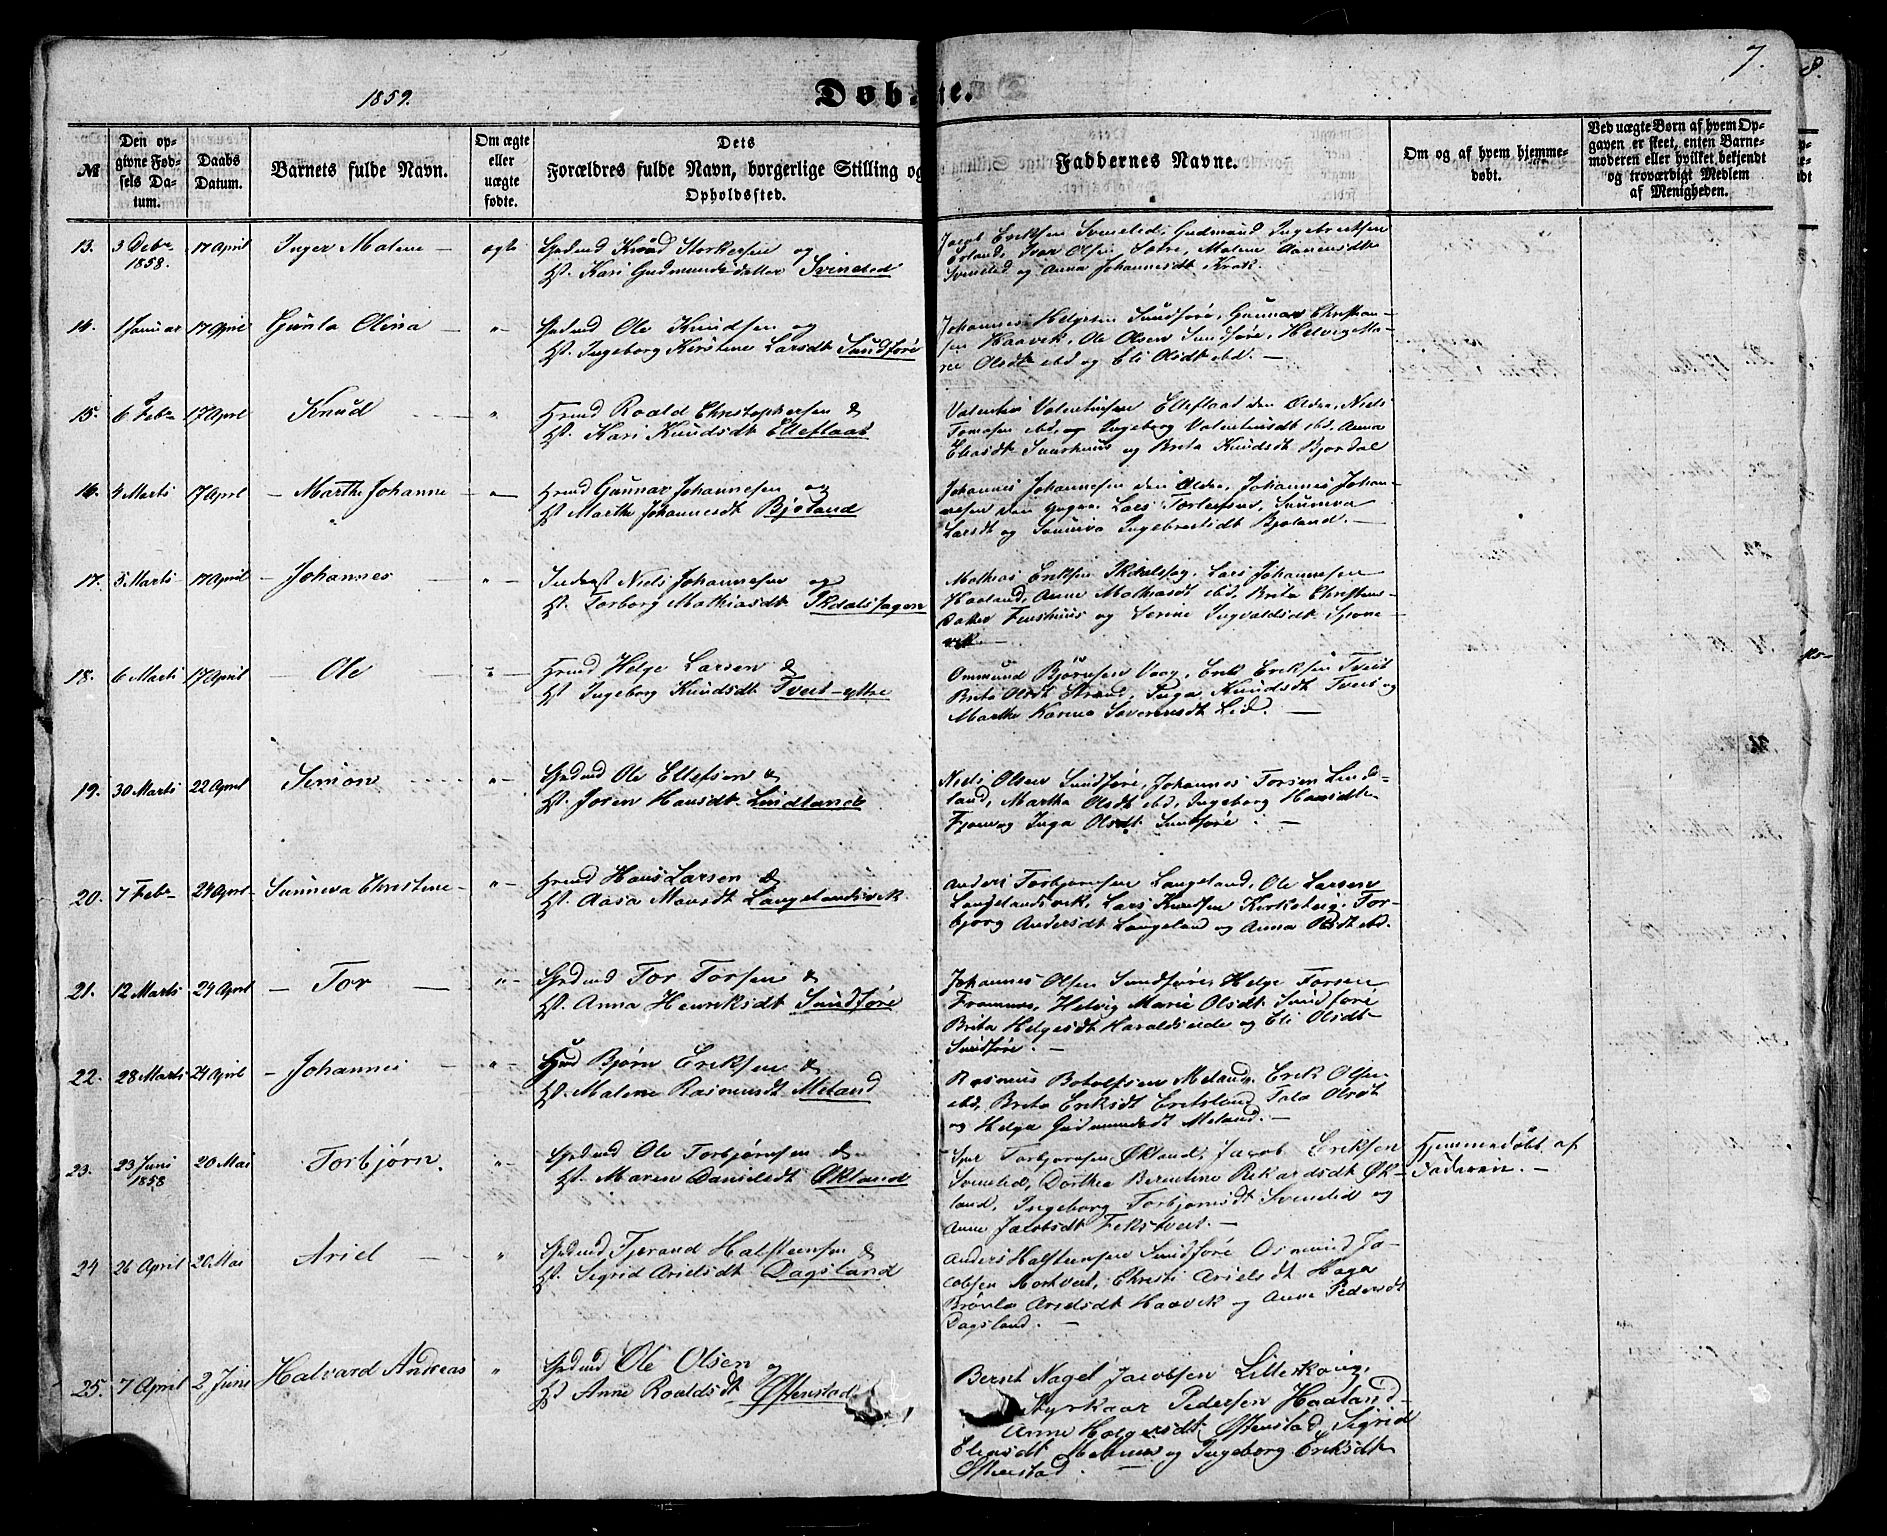 7.
8.
1859.
Døbte.
№
Den opgivne Fødsels Datum.
Daabs Datum.
Barnets fulde Navn.
Om ægte eller uægte fødte.
Dets Forældres fulde Navn, borgerlige Stilling og Opholdssted.
Faddernes Navne.
Om og af hvem hjemmedøbt.
Ved uægte Børn af hvem Opgaven er skeet, enten Barnemoderen eller hvilket bekjendt og troværdigt Medlem af Menigheden.
13. 3 Debr 1858. 17 April Inger Malene ægte
Gdmd Knud Storkersen og
H. Kari Gudmundsdatter Svineled
Jacob Eriksen Svineled, Gudmund Ingebretsen
Ivar Olsen Malene
Svineled og Anna Johannesdt
14. 1 Januar 17 April Gunla Olina "
Gdmd Ole Knudsen og
H. Ingeborg Kirstine Larsdt Sundføre
Johannes Helgesen Sundføre, Gunnar Christian-
sen Haavik, Ole Olsen Sundføre, Helvig Ma-
rie Olsdt ebd og Eli Olsdt ebd.
15. 6 Febr 17 Aprl Knud "
Hmd Roald Christophersen &
H. Kari Knudsdt Elleflaat
Valentin Valentinsen Elleflaat den Eldre, Niels
Tomasen ebd, og Ingeborg Valentinsdt ebd, Anna
Eliasdt og Brita Knudsdt Bjordal
16. 4 Marts 17 Aprl Marthe Johanne "
Hmd Gunnar Johannesen og
H. Marthe Johannesdt Bjoland
Johannes Johannesen den Eldre, Johannes Johan-
nesen den Yngre, Lars Sunneva
Larsdt og Sunneva Ingebretsdt Bjoland.
17. 5 Marts 17 April Johannes "
Inderst Niels Johannesen og
H. Torborg Mathiasdt
Mathias Eriksen Lars Johannesen
Haaland, Anne Mathiasdt ebd, Brita Christens-
datter og Serine Ingvaldsdt
18. 6 Marts 17 April Ole "
Hmd Helge Larsen &
H. Ingeborg Knudsdt Tveit-ytre
Ommund Bjørnsen Vaag, Erik Eriksen Tveit
Brita Olsdt Inga Knudsdt Tveit og
Marthe Karine Severinsdt Lid.
19. 30 Marts 22 April Simon "
Gdmd Ole Ellefsen &
H. Joren Hansdt Lindland
Niels Olsen Sundføre, Johannes Torsen Lind-
land, Martha Olsdt ebd, Ingeborg Hansdt
og Inga Olsdt Sundføre.
20. 7 Febr 24 Aprl Sunneva Christine "
Hmd Hans Larsen &
H. Aasa Monsdt Langelandsvik
Anders Torbjørnsen Langeland, Ole Larsen
Langelandsvik, Lars Knudsen Kirketeig, Tor-
bjorg Andersdt Langeland og Anna Olsdt ebd.
21. 12 Marts 24 Aprl Tor "
Gdmd Tor Torsen &
H. Anna Henriksdt Sundføre
Johannes Olsen Sundføre, Helge Torsen
Framnes, Helvig Marie Olsdt Sundføre
Brita Helgesdt Haraldseide og Eli Olsdt
Sundføre.
22. 28 Marts 24 April Johannes "
Gmd Bjørn Eriksen &
H. Malene Rasmusdt Meland
Rasmus Botolfsen Meland, Erik Olsen
ebd, Brita Eriksdt Eretsland, Tala Olsdt
og Helga Gudmundsdt Meland.
23. 23 Juni 1858 20 Mai Torbjørn. "
Gdmd Ole Torbjørnsen &
H. Maren Danieldt Økland
Torbjørnsen Økland, Jacob Eriksen
Svineled, Dorthea Berentine Rikardsdt Øk-
land, Ingeborg Torbjørnsdt Svineled og
Anne Jacobsdt Fikstveit.
Hjemmedøbt af
Faderen.
24 26 April 20 Mai Ariel "
Gdmd Tjerand Halsteensen &
H. Sigrid Arielsdt Dagsland
Anders Halsteensen Sundføre Osmund Ja-
cobsen Mortveit, Christi Arielsdt Haga
Brønla Arielsdt Haavik og Anne Pedersdt
Dagsland.
25. 7 April 2 Juni Halvard Andreas "
Gdmd Ole Olsen og
H. Anne Roaldsdt Østenstad
Bernt Nagel Jacobsen Litleskoug,
Styrkaar Pedersen Haaland
Anne Holgersdt Østenstad, Sigrid
Eliasdt og Ingeborg Eriksdt
Østenstad.